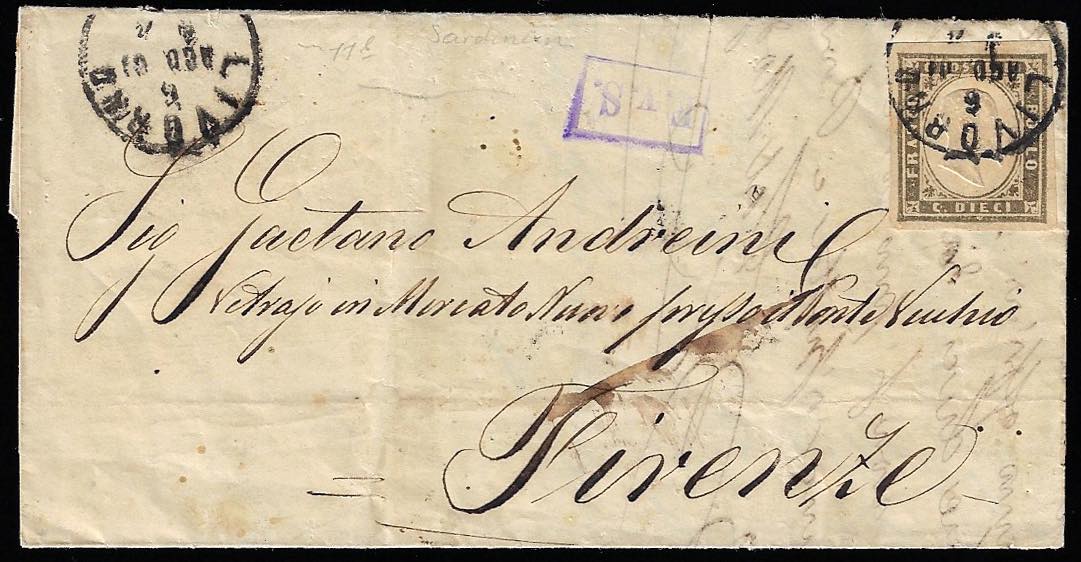 Sardinien
LIVORNO
6
AGO 61
P.V.S.
LIVORNO
6
AGO 61
FRANCO BOLLO
C. DIECI
Sig Gaetano Andreini
Vetrajo in Mercato Nuovo presso il Ponte Vecchio
Firenze